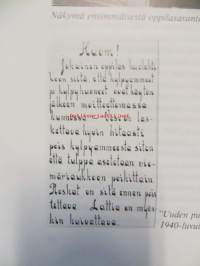 Näkymä ensimmäisestä oppilasasunto
Huom!
Jokainen oppilas huolehti-
koon siitä, että kylpyammeet
ja kylpyhuoneet ovat käytön
jälkeen moitteettomassa
kunnossa. Vesi on las-
kettava hyvin hitaasti
pois kylpyammeesta siten
että tulppa asetetaan vie-
märiaukkoon
Roskat on sitä ennen pois-
tettava Lattia on myös-
kin kuivattava.
"Uuden pu
1940-luvu